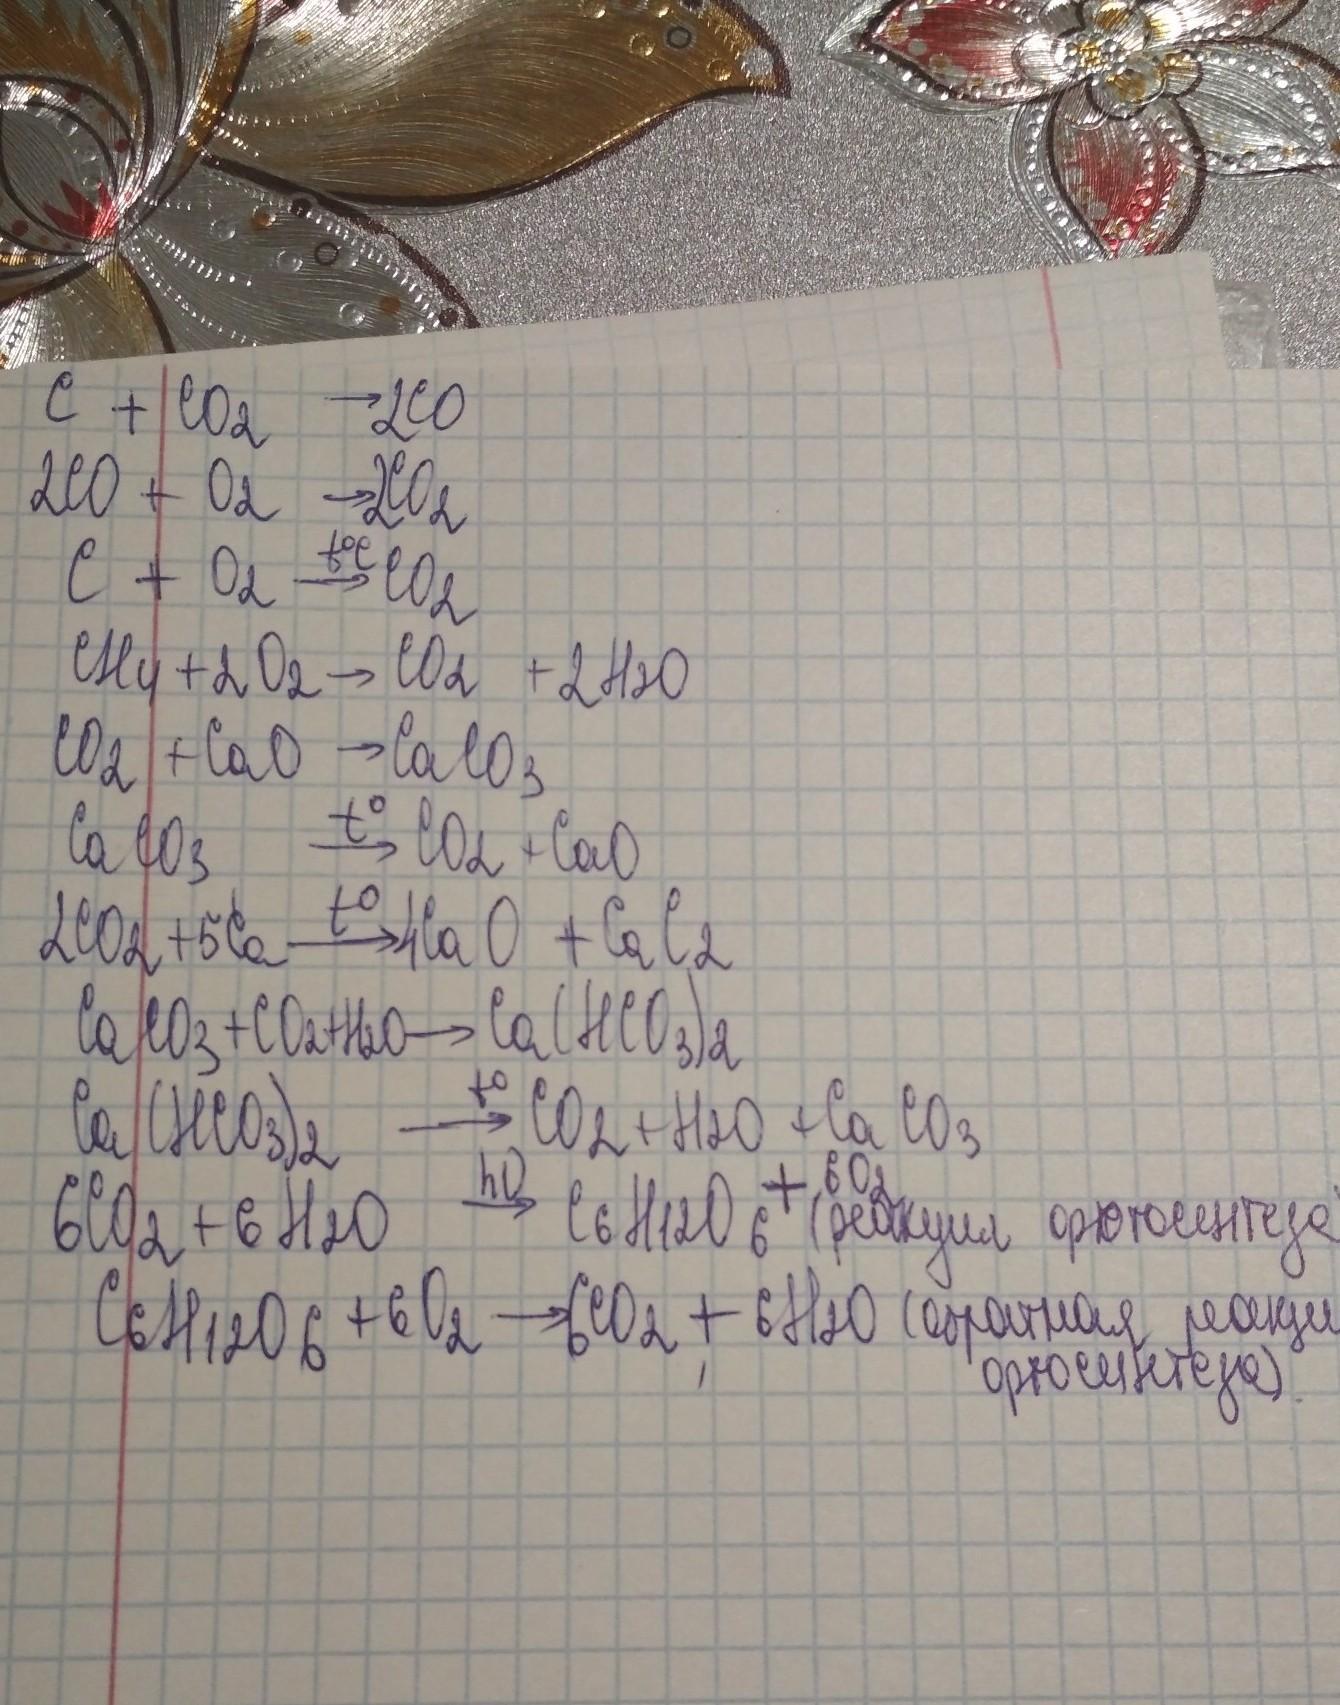 C + CO2 → 2CO
2CO + O2 → 2CO2
C + O2 t°C → CO2
CH4 + 2O2 → CO2 + 2H2O
CO2 + CaO → CaCO3
CaCO3 t° → CO2 + CaO
2CO2 + 5Ca t° → 4CaO + CaC2
CaCO3 + CO2 + H2O → Ca(HCO3)2
Ca(HCO3)2 t° → CO2 + H2O + CaCO3
6CO2 + 6H2O hν → C6H12O6 + 6O2 (реакция фотосинтеза
C6H12O6 + 6O2 → 6CO2 + 6H2O (обратная реакци
фотосинтеза).